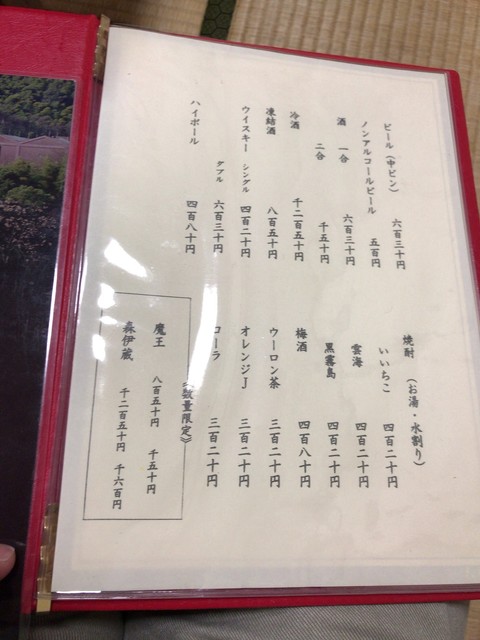 ビール（中ビン） 六百三十円
ノンアルコールビール 五百円
酒 一合 六百三十円
二合 千五十円
冷酒 千二百五十円
凍結酒 八百五十円
ウイスキー シングル 四百二十円
ダブル 六百三十円
ハイボール 四百八十円
焼酎 （お湯・水割り）
いいちこ 四百二十円
雲海 四百二十円
黒霧島 四百二十円
梅酒 四百八十円
ウーロン茶 三百二十円
オレンジJ 三百二十円
コーラ 三百二十円
《数量限定》
魔王 八百五十円 千五十円
森伊蔵 千二百五十円 千六百円